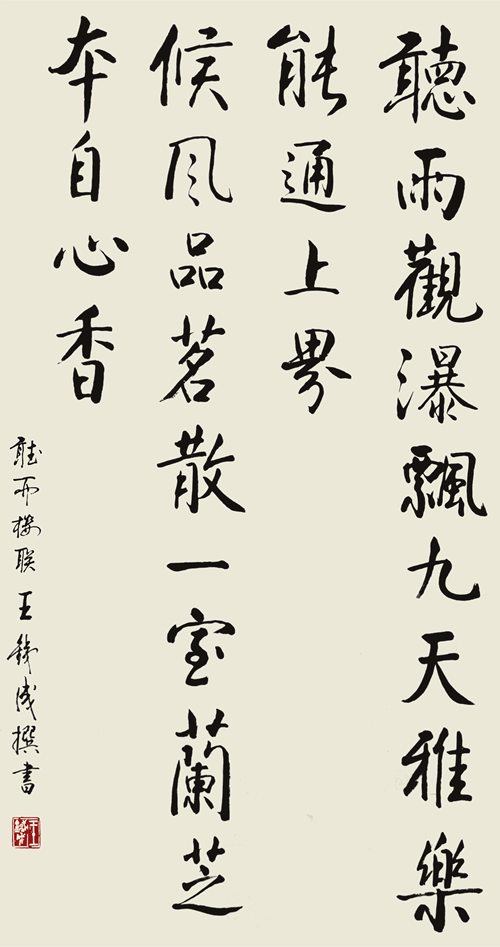 聽雨觀瀑飄九天雅樂
能通上界
候風品茗散一室蘭芝
本自心香
聽雨樓聯 王鐵成撰書